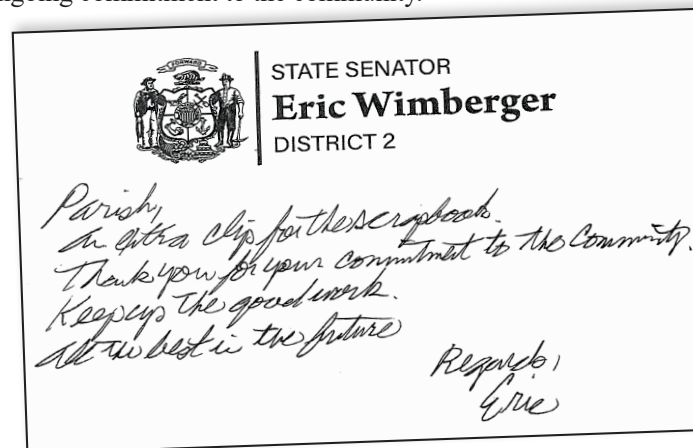 ngoing commitment to the community.
FORWARD
STATE SENATOR
Eric Wimberger
DISTRICT 2
Parish,
An extra clip for the scrapbook.
Thank you for your commitment to the Community.
Keep up the good work.
All the best in the future
Regards,
Eric